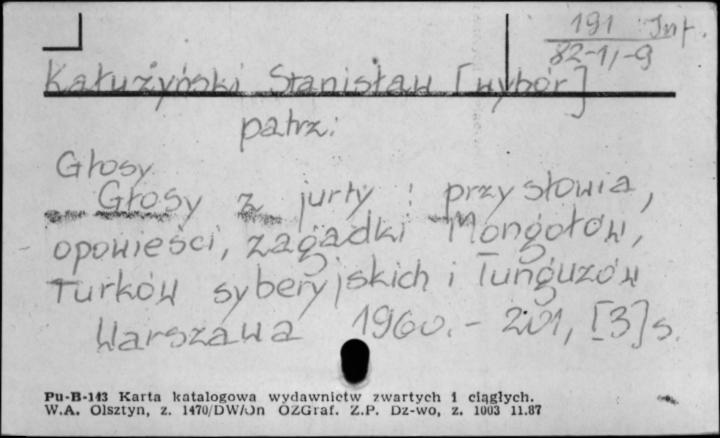 191 Inf.
82-1/-9
Kałużyński Stanisław [wybór]
patrz:
Głosy
Głosy z jurty : przysłowia,
opowieści, zagadki Mongołów,
Turków syberyjskich i Tunguzów
Warszawa 1960. - 201, [3] s.
Pu-B-113 Karta katalogowa wydawnictw zwartych i ciągłych.
W.A. Olsztyn, z. 1470/DW/Jn OZGraf. Z.P. Dz-wo, z. 1003 11.87